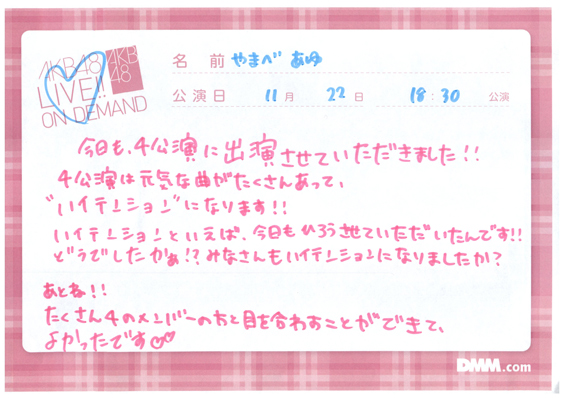 AKB48
LIVE!!
ON DEMAND
AKB
48
名 前 やまべ あゆ
公演日 11月 22日 18:30 公演
今日も、4公演に出演させていただきました!!
4公演は元気な曲がたくさんあって、
"いイテンション"になります!!
いイテンションといえば、今日もひろうさせていただいたんです!!
どうでしたかぁ!?みなさんもいイテンションになりましたか?
あとね!!
たくさん4のメンバーのちと目を合わすことができて、
よかったです♡♡
DMM.com